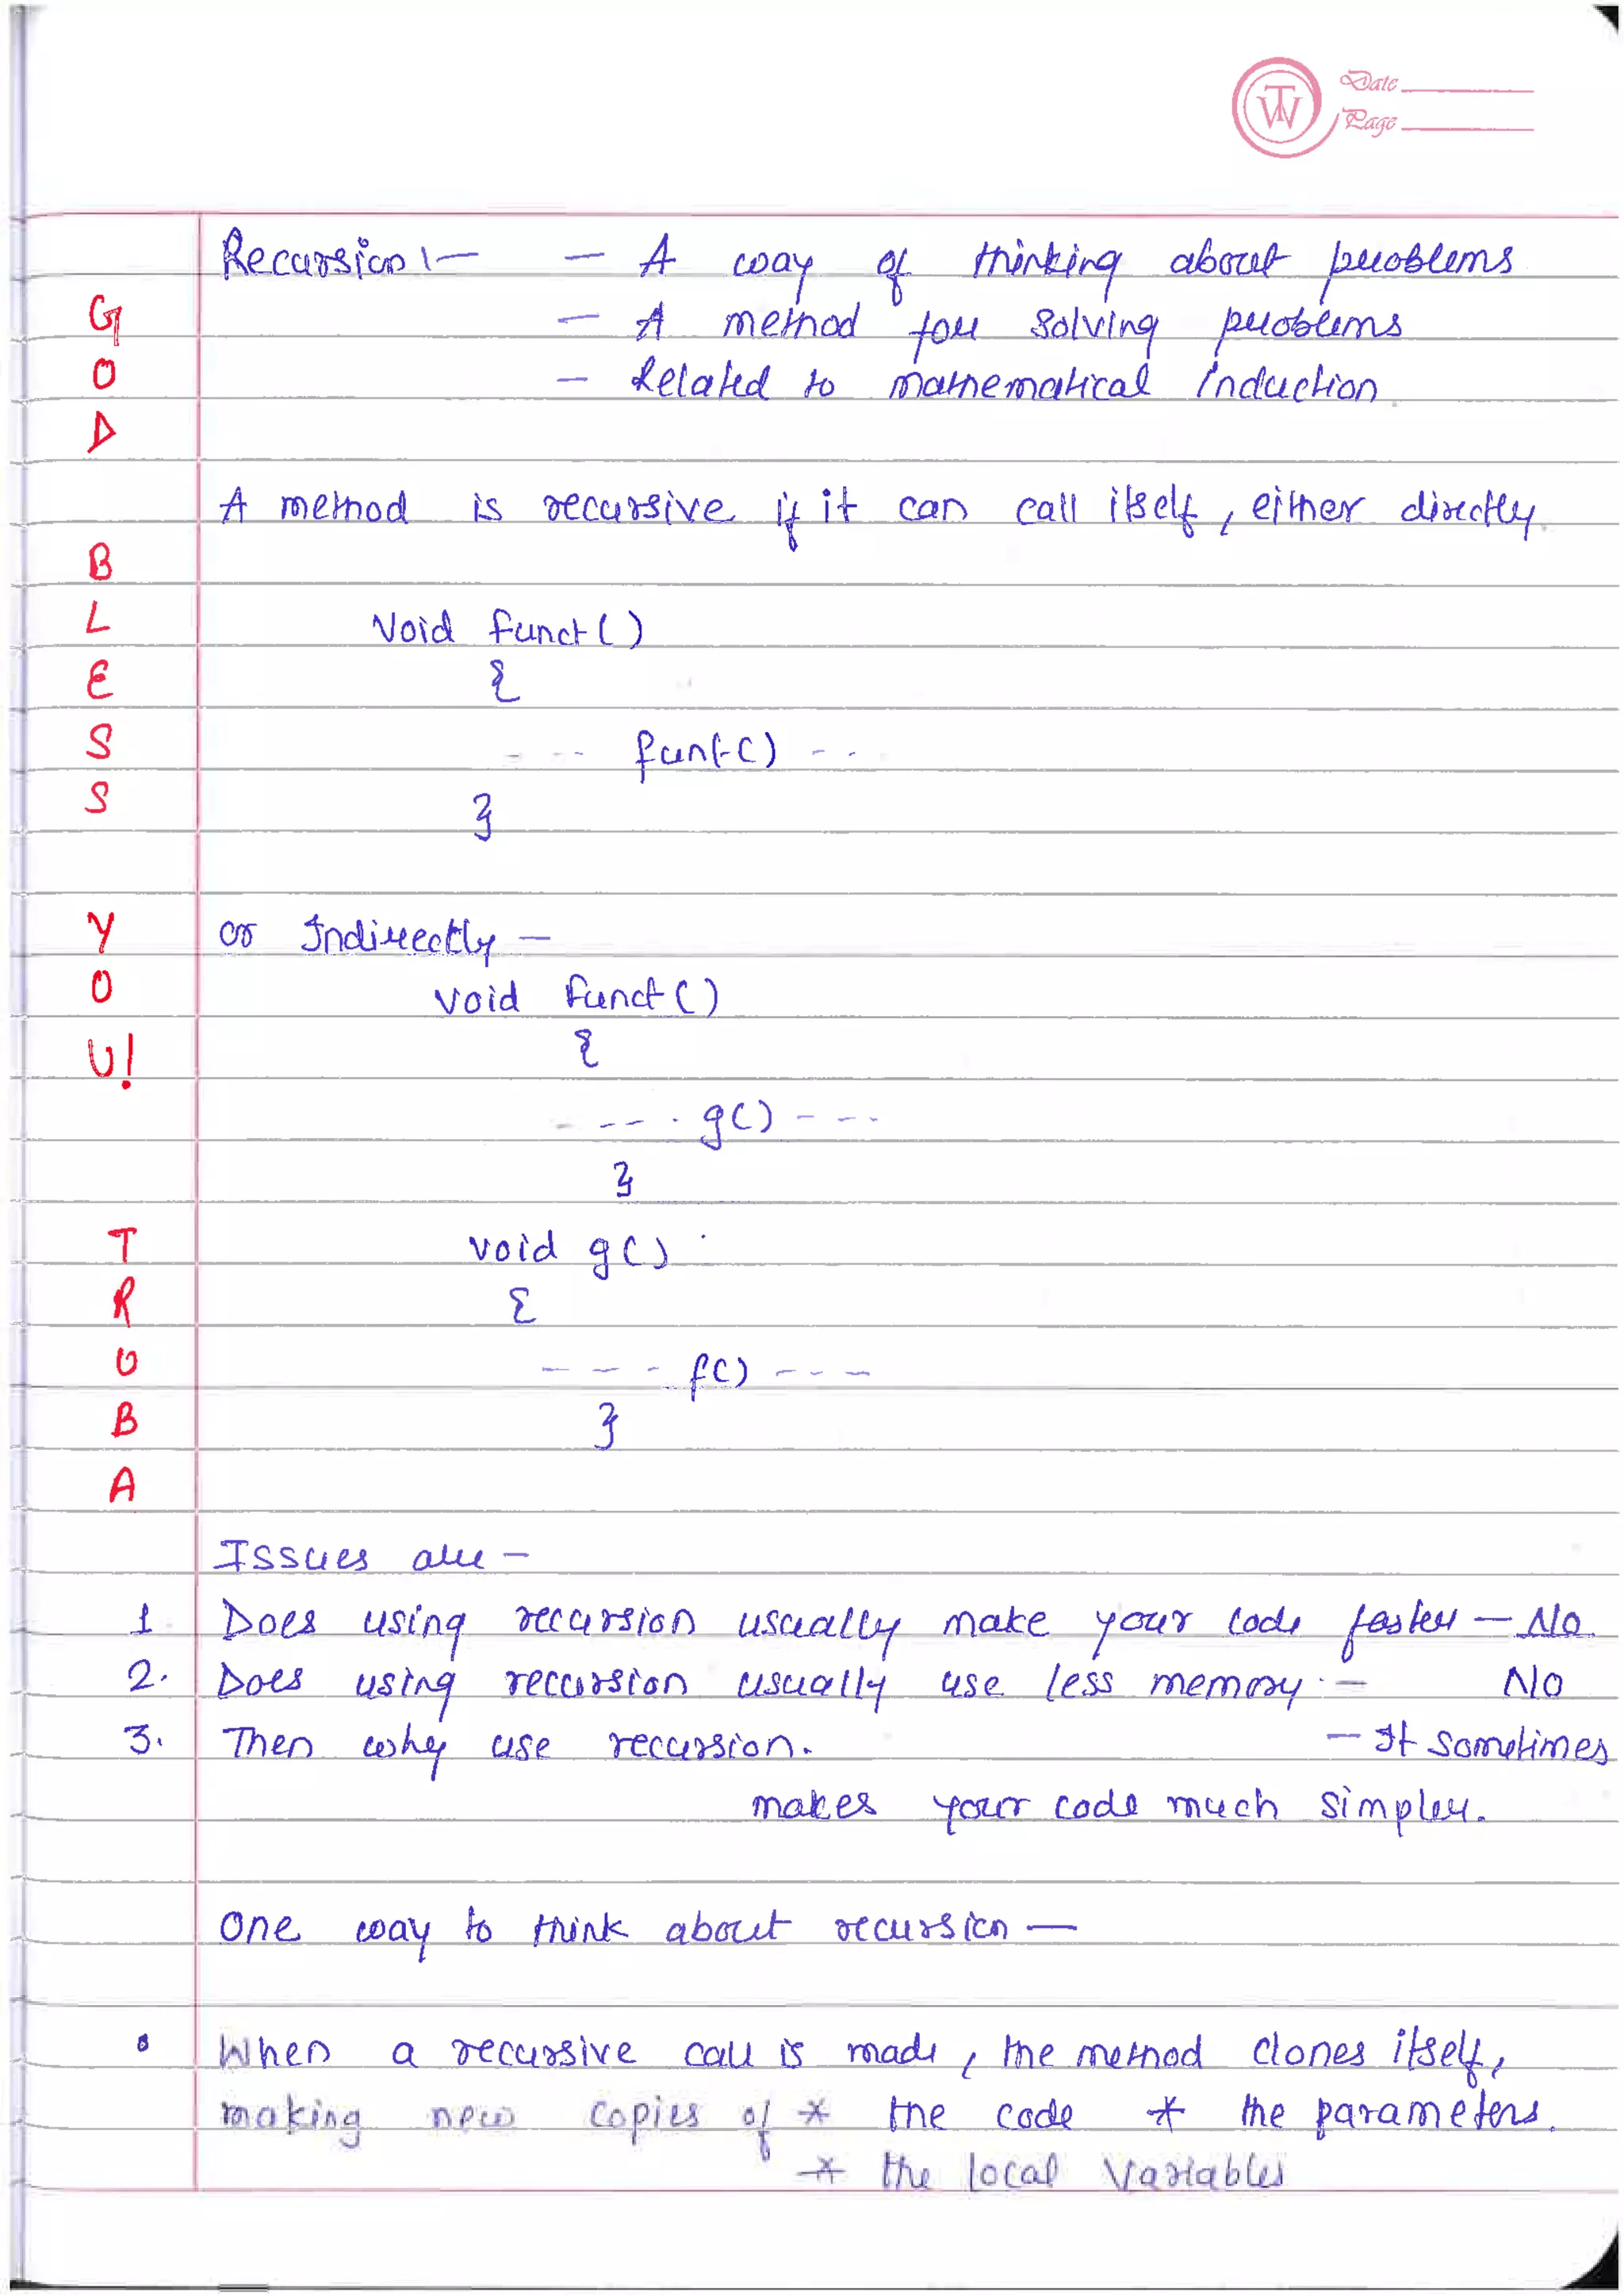 TW Date
Page
Recursion :— — A way of thinking about problems
— A method for Solving problems
— Related to mathematical Induction
A method is recursive if it can call itself, either directly
Void funct ( )
{
- - - funt() - -
}
or Indirectly —
void funct ( )
{
- - - - g() - - -
}
void g()
{
- - - f() - - -
}
Issues are —
1 Does using recursion usually make your code faster — No.
2. Does using recursion usually use less memory. — No
3. Then why use recursion. — It Sometimes
makes your code much simpler.
One way to think about recursion —
• When a recursive call is made, the method clones itself,
making new copies of * the code * the parameters.
* the local Variables
G
O
D
B
L
E
S
S
Y
O
U!
T
R
U
B
A